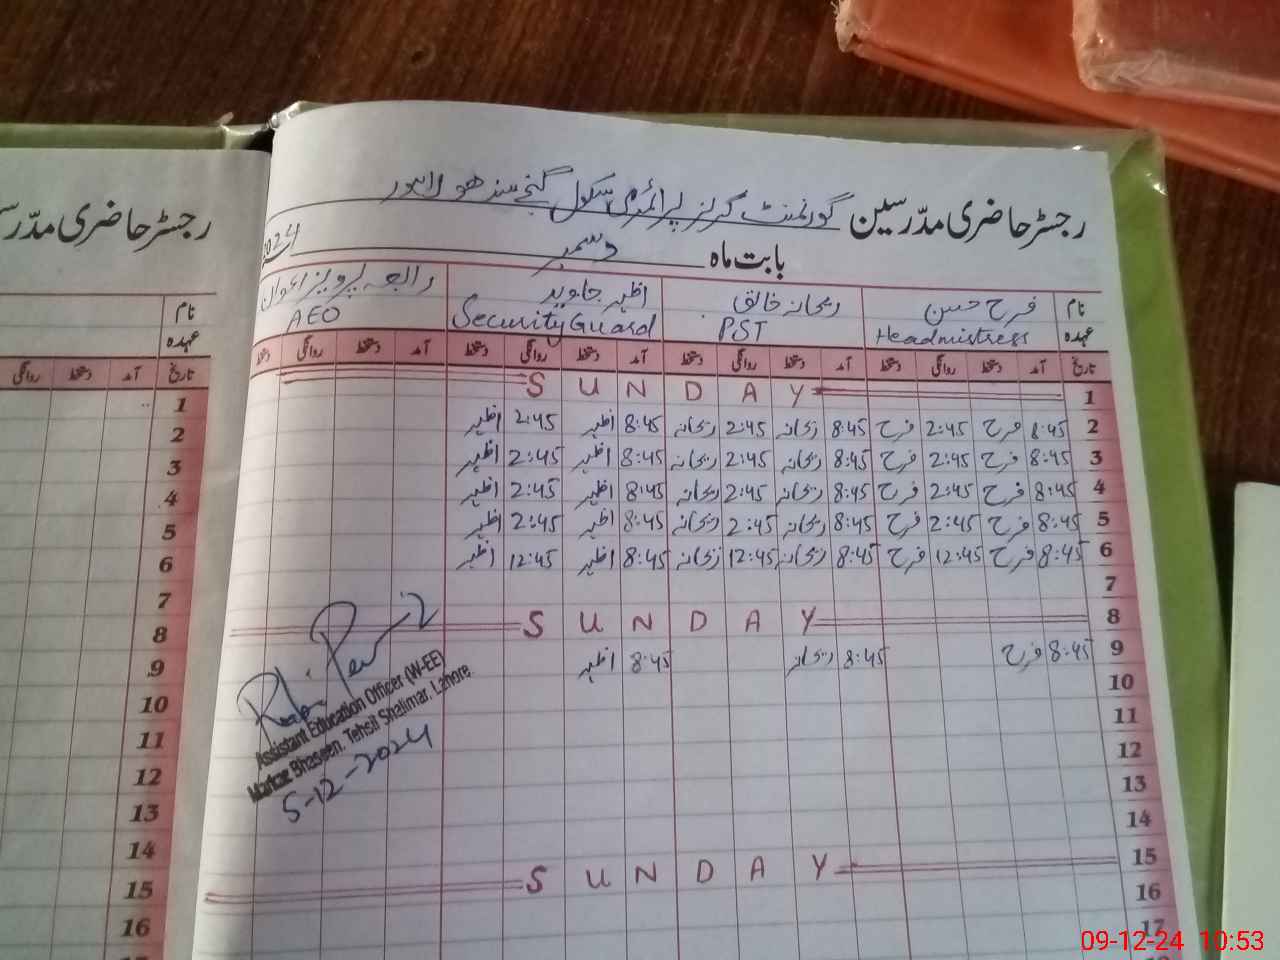 رجسٹر حاضری مدرّسین گورنمنٹ گرلز پرائمری سکول گنجے سندھو لاہور
بابت ماہ دسمبر 2024
نام فرح حسن ریحانہ خالق اظہر جاوید رابعہ پرویز اعوان
عہدہ Headmistress PST Security Guard AEO
تاریخ آمد دستخط روانگی دستخط آمد دستخط روانگی دستخط آمد دستخط روانگی دستخط آمد دستخط روانگی دستخط
1 SUNDAY
2 8:45 فرح 2:45 فرح 8:45 ریحانہ 2:45 ریحانہ 8:45 اظہر 2:45 اظہر
3 8:45 فرح 2:45 فرح 8:45 ریحانہ 2:45 ریحانہ 8:45 اظہر 2:45 اظہر
4 8:45 فرح 2:45 فرح 8:45 ریحانہ 2:45 ریحانہ 8:45 اظہر 2:45 اظہر
5 8:45 فرح 2:45 فرح 8:45 ریحانہ 2:45 ریحانہ 8:45 اظہر 2:45 اظہر
6 8:45 فرح 12:45 فرح 8:45 ریحانہ 12:45 ریحانہ 8:45 اظہر 12:45 اظہر
7
8 SUNDAY
9 8:45 فرح 8:45 ریحانہ 8:45 اظہر
10
11
12
13
14
15 SUNDAY
16
17
Assistant Education Officer (W-EE)
Markaz Bhaseen, Tehsil Shalimar, Lahore
5-12-2024
رجسٹر حاضری مدّرس
نام
عہدہ
تاریخ آمد دستخط روانگی
1
2
3
4
5
6
7
8
9
10
11
12
13
14
15
16
09-12-24 10:53